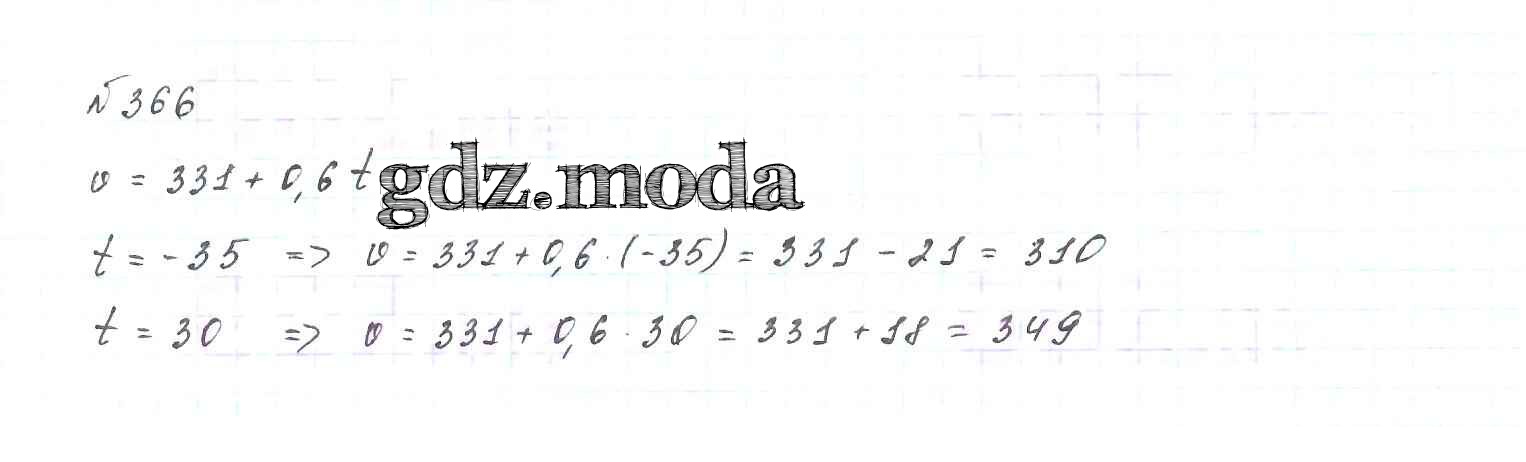 №366
v = 331 + 0,6 t gdz.moda
t = -35 => v = 331 + 0,6 · (-35) = 331 - 21 = 310
t = 30 => v = 331 + 0,6 · 30 = 331 + 18 = 349